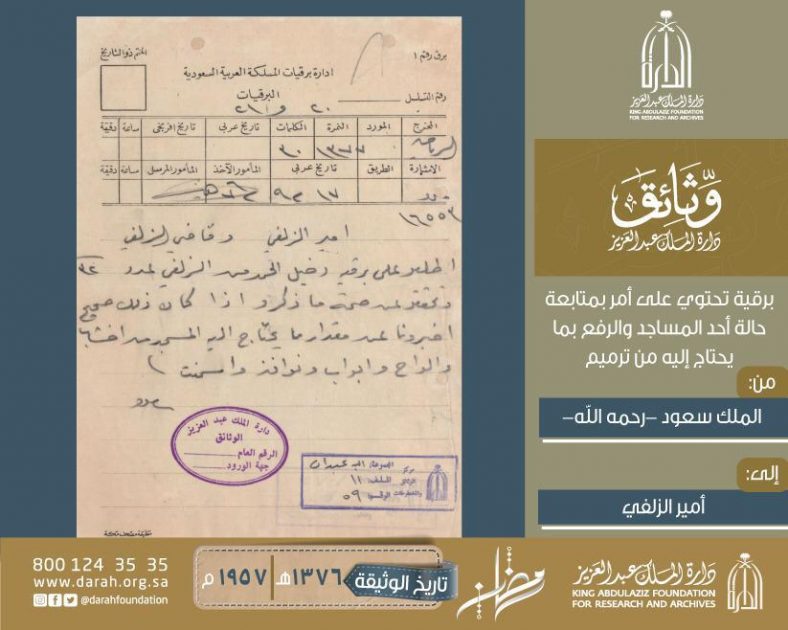 دارة الملك عبدالعزيز
KING ABDULAZIZ FOUNDATION
FOR RESEARCH AND ARCHIVES
وثائق
دارة الملك عبدالعزيز
برقية تحتوي على أمر بمتابعة
حالة أحد المساجد والرفع بما
يحتاج إليه من ترميم
من:
الملك سعود –رحمه الله–
إلى:
أمير الزلفي
برق رقم ١
الختم ذو التاريخ
ادارة برقيات المملكة العربية السعودية
رقم التسلسل
البرقيات
المخرج المورد النمرة الكلمات تاريخ عربي تاريخ افرنجي ساعة دقيقة
الرياض ١٣٧٧ ٣٠
الاشارة الطريق تاريخ عربي المأمور الآخذ المأمور المرسل ساعة دقيقة
١٧ ٩
١٦٥٥٣
امير الزلفي وقاضي الزلفي
اطلعوا على برقية دخيل الحمد من الزلفي لعدد
وتحققوا عن صحة ما ذكر و اذا كان ذلك صحيح
اخبرونا عن مقدار ما يحتاج اليه المسجد من اخشاب
والواح وابواب ونوافذ واسمنت
سعود
دارة الملك عبد العزيز
الوثائق
الرقم العام
جهة الورود
مركز الوثائق والمخطوطات
المجموعة:
الملف: ١١
الرقم: ٥٩
800 124 35 35
www.darah.org.sa
@darahfoundation
تاريخ الوثيقة ١٣٧٦هـ ١٩٥٧م
رمضان
دارة الملك عبدالعزيز
KING ABDULAZIZ FOUNDATION
FOR RESEARCH AND ARCHIVES